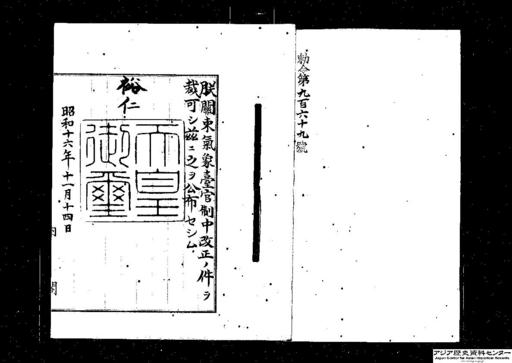 勅令第九百六十九號
朕關東氣象臺官制中改正ノ件ヲ
裁可シ玆ニ之ヲ公布セシム
裕仁
天皇
御璽
昭和十六年十一月十四日
内閣
アジア歴史資料センター
Japan Center for Asian Historical Records